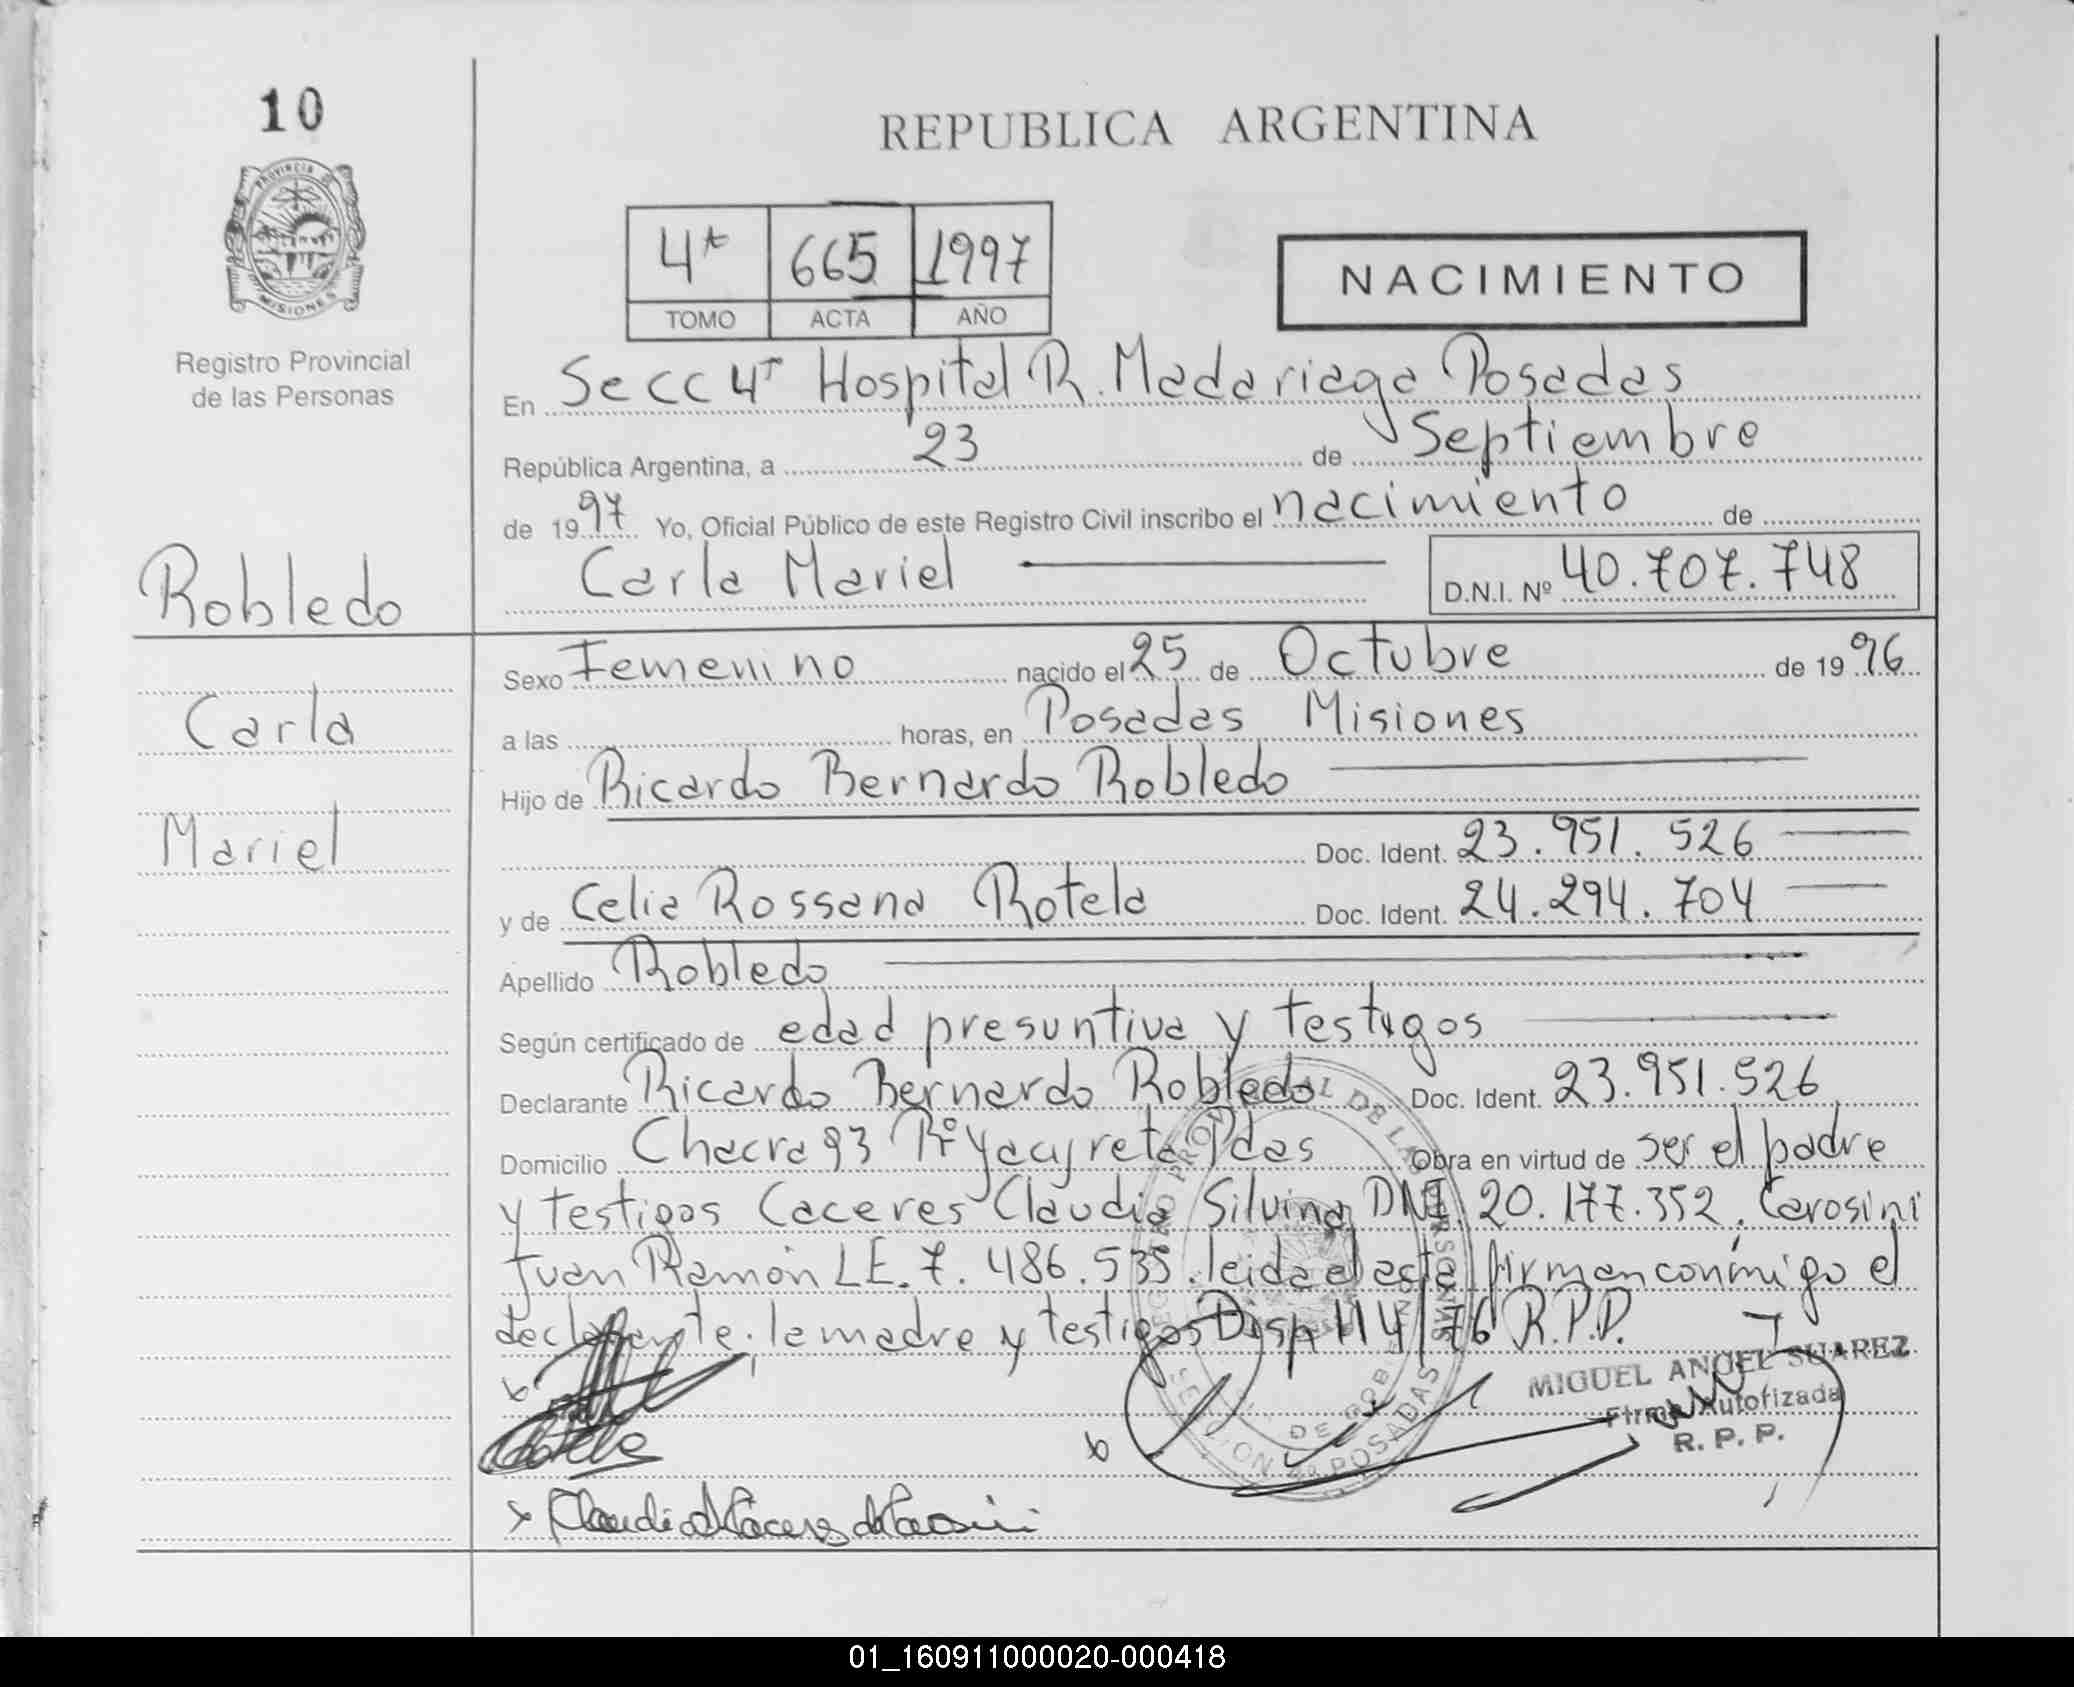 10
PROVINCIA DE
MISIONES
Registro Provincial
de las Personas
Robledo
Carla
Mariel
REPUBLICA ARGENTINA
4ª 665 1997
TOMO ACTA AÑO
NACIMIENTO
En Secc 4ª Hospital R. Madariaga Posadas
República Argentina, a 23 de Septiembre
de 1997 Yo, Oficial Público de este Registro Civil inscribo el nacimiento de
Carla Mariel D.N.I. Nº 40.707.748
Sexo Femenino nacido el 25 de Octubre de 1996
a las horas, en Posadas Misiones
Hijo de Ricardo Bernardo Robledo
Doc. Ident. 23.951.526
y de Celia Rossana Rotela Doc. Ident. 24.294.704
Apellido Robledo
Según certificado de edad presuntiva y testigos
Declarante Ricardo Bernardo Robledo Doc. Ident. 23.951.526
Domicilio Chacra 93 Bº Yacyreta Pdas Obra en virtud de ser el padre
y testigos Caceres Claudia Silvina DNI. 20.177.352, Carosini
Juan Ramón LE. 7.486.535. leida el acta firman conmigo el
declarante, la madre y testigos Disp 114/76 R.P.P.
MIGUEL ANGEL SUAREZ
Firma Autorizada
R. P. P.
SECCION 4ª POSADAS
Rotela
x Claudia S Caceres de Carosini
01_160911000020-000418